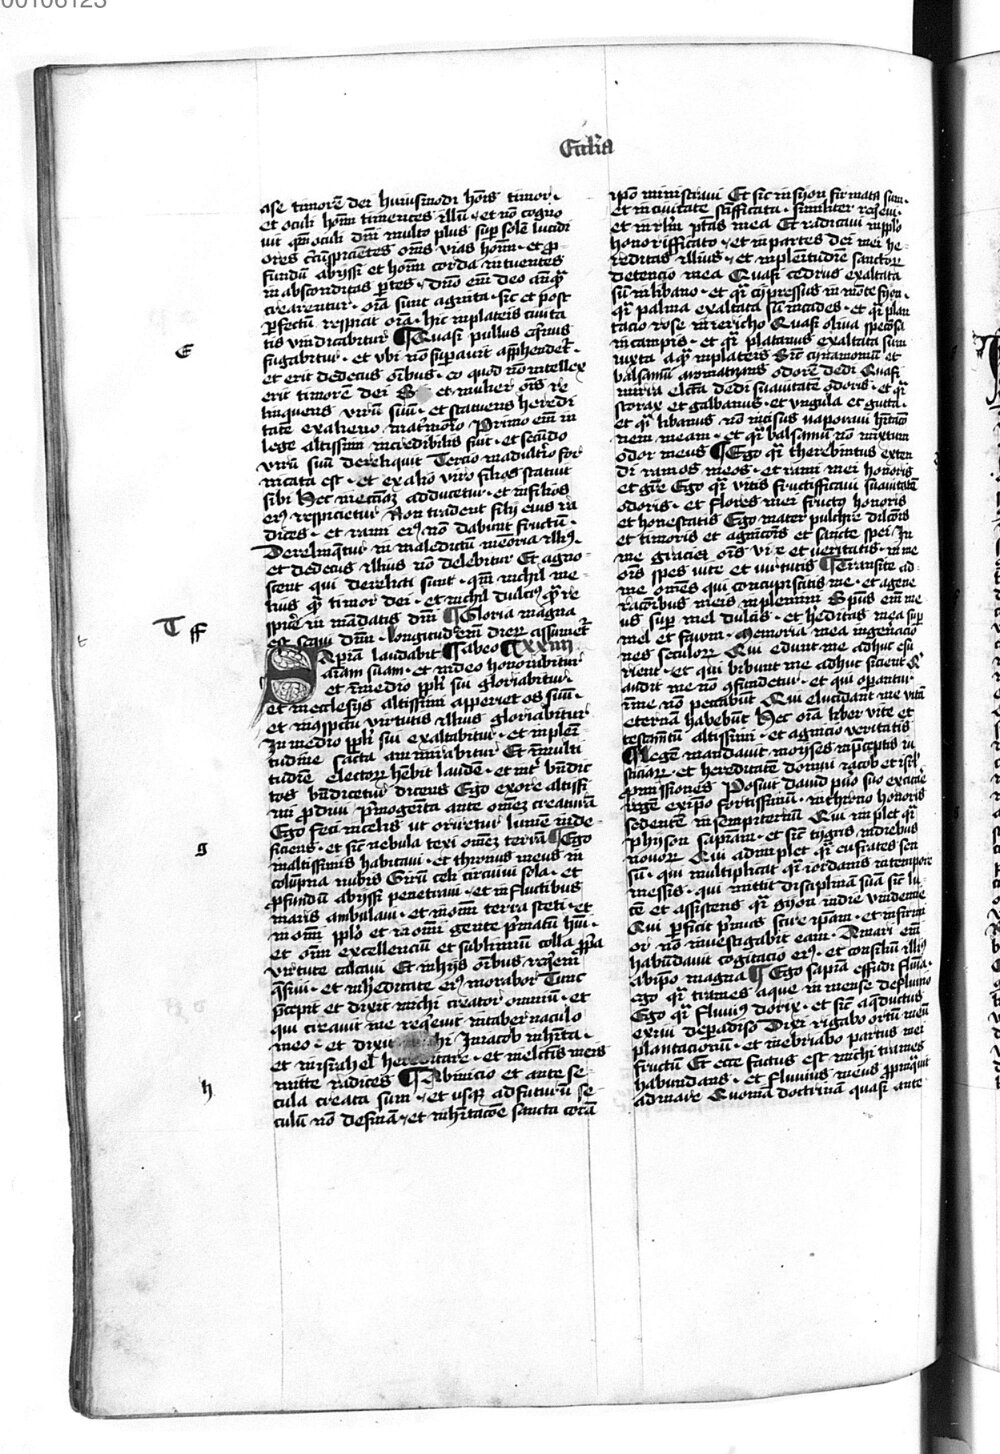 00106123
Eccl'ia
ase timorē dei huiusmodi hōis timor·
et oculi hōm timentes illū · et nō cogno
uit qm̄ oculi dm̄ multo plus sup̄ solē lucidi
ores circūspiciētes om̄s vias hōm · et ꝓ
fundū abyssi et hōm corda intuentes
in absconditas p̄tes · dn̄o em̄ deo anteq̄
crearentur · oīa sunt agnita · sic et post
p̄fectū respicit oīa · hic in plateis ciuita
tis vindicabitur ¶ Quasi pullus eq̄inus
fugabitur · et vbi nō supauit app̄hendet̄ ·
et erit dedecus om̄ibus · eo quod nō intellex
erit timorē dei Sic et mulier om̄s re
linquens virū suū · et statuens heredi
tatē ex alieno matrimōio Primo em̄ in
lege altissimi incredibilis fuit · et secūdo
virū suū dereliquit Tercio in adult'io for
nicata est · et ex alio viro filios statuit
sibi Hec in eccl'iaz adducetur · et in filios
eiꝰ respicietur Non tradent filij eius ra
dices · et rami eiꝰ nō dabunt fructū ·
Derelinq̄tur in maledictū memoria illiꝰ
et dedecus illius nō delebitur Et agno-
scent qui derelicti sunt · qm̄ nichil me-
lius q̄ timor dei · et nichil dulciꝰ q̄ re
spice in mādatis dn̄i ¶ Gloria magna
est sequi dn̄m · longitudo em̄ dierꝝ assumet̄
Sapiētia laudabit ¶ ab eo ¶ xxiiij
aīam suam · et in deo honorabitur
et in medio ppl'i sui gloriabitur
et in ecclesijs altissimi apperiet os suū ·
et in ꝯspectu virtutis illius gloriabitur
In medio ppl'i sui exaltabitur · et in plēi
tudine sancta ammirabitur Et in multi
tudīe electorꝝ hēbit laudē · et int' bn̄dic
tos bn̄dicetur dicens Ego ex ore altissi
mi ꝓdiui p̄mogenita ante om̄ez creaturā
Ego feci in celis ut oriretur lumē inde-
ficiens · et sic̄ nebula texi om̄ez terrā ¶ Ego
in altissimis habitaui · et thronus meus in
colūpna nubis Girū celi circuiui sola · et
ꝓfundū abyssi penetraui · et in fluctibus
maris ambulaui · et in om̄i terra steti · et
in om̄i ppl'o et in om̄i gente p̄matū h'ui ·
et om̄i excellenciū et sublimiū colla ꝓpria
virtute calcaui Et in hijs om̄ibus req̄iem
q̄siui · et in h'editate eiꝰ morabor Tunc
p̄cepit et dixit michi creator omniū · et
qui creauit me req̄euit in tabernaculo
meo · et dixit michi In iacob in h'ita ·
et in israhel hereditare · et in electis meis
mitte radices ¶ Ab inicio et ante se-
cula creata sum · et usq̄ ad futurū se
culū nō desinā · et in h'itacōe sancta corā
ip̄o ministraui Et sic in syon firmata sum ·
et in ciuitate sc̄ificata · similiter req̄eui ·
et in ir'lm p̄tas mea Et radicaui in ppl'o
honorifficato · et in partes dei mei he-
reditas illius · et in plenitudīe sanctorꝝ
detencio mea Quasi cedrus exaltata
sū in libano · et q̄i cypressus in mōte syon ·
q̄i palma exaltata sū in cades · et q̄i plan
tacio rose in iericho Quasi oliua speciosa
in campis · et q̄i platanus exaltata sum
iuxta aq̄ in plateis Sic̄ cynamomū et
balsamū aromatizans odorē dedi Quasi
mirra elc̄ta dedi suauitatē odoris · et q̄i
storax et galbanus · et vngula et gutta ·
et q̄i libanus nō incisus vaporaui h'itacio
nem meam · et q̄i balsamū nō mixtum
odor meus ¶ Ego q̄i therebintus exten
di ramos meos · et rami mei honoris
et gr̄e Ego q̄i vitis fructifficaui suauitatē
odoris · et flores mei fructo honoris
et honestatis Ego mater pulchre dilcōis
et timoris et agnicōis et sancte spei In
me gracia ois vie et veritatis · in me
ois spes vite et virtutis ¶ Transite ad-
me om̄es qui concupiscitis me · et agene
racōibus meis implemini Spūs em̄ me
us sup̄ mel dulcis · et h'editas mea sup̄
mel et fauum · Memoria mea in genacio
nes seculorꝝ Qui edunt me adhuc esu
rient · et qui bibunt me adhuc sicient Q'
audit me nō ꝯfundetur · et qui operantur
in me nō peccabūt Qui elucidant me vitā
eternā habebūt Hec oīa liber vite et
testam̄tū altissimi · et agnicio veritatis
¶ Legē mandauit moyses in p̄ceptis iu
sticiarꝝ · et hereditatē domui iacob et isrl'
ꝓmissiones Posuit dauid puo suo excitare
regē ex ip̄o fortissimū · in throno honoris
sedentē in sempiternū Qui implet q̄i
physon sapiam · et sic̄ tygris in diebus
nouorꝝ Qui adimplet q̄i eufrates sen
sū · qui multiplicat q̄i iordanis in tempore
messis · qui mittit disciplinā suā sic̄ lu-
cē et assistens q̄i gyon in die vindemie
Qui p̄ficit p̄mus scire ip̄am · et infirmi
or nō inuestigabit eam · A mari em̄
habūdauit cogitacio eiꝰ · et consiliū illiꝰ
ab ip̄o magna ¶ Ego sapia effudi flumīa
ego q̄i trames aque in mense de fluuio
Ego q̄i fluuiꝰ dorix · et sic̄ aq̄ductus
exiui de paradiso Dixi rigabo ortū meū
plantacionū · et inebriabo partus mei
fructū Et ecce factus est michi trames
habundans · et fluuius meus ꝓpinq̄uit
ad mare Quoniā doctrinā quasi ante
E
T ff
t
g
h